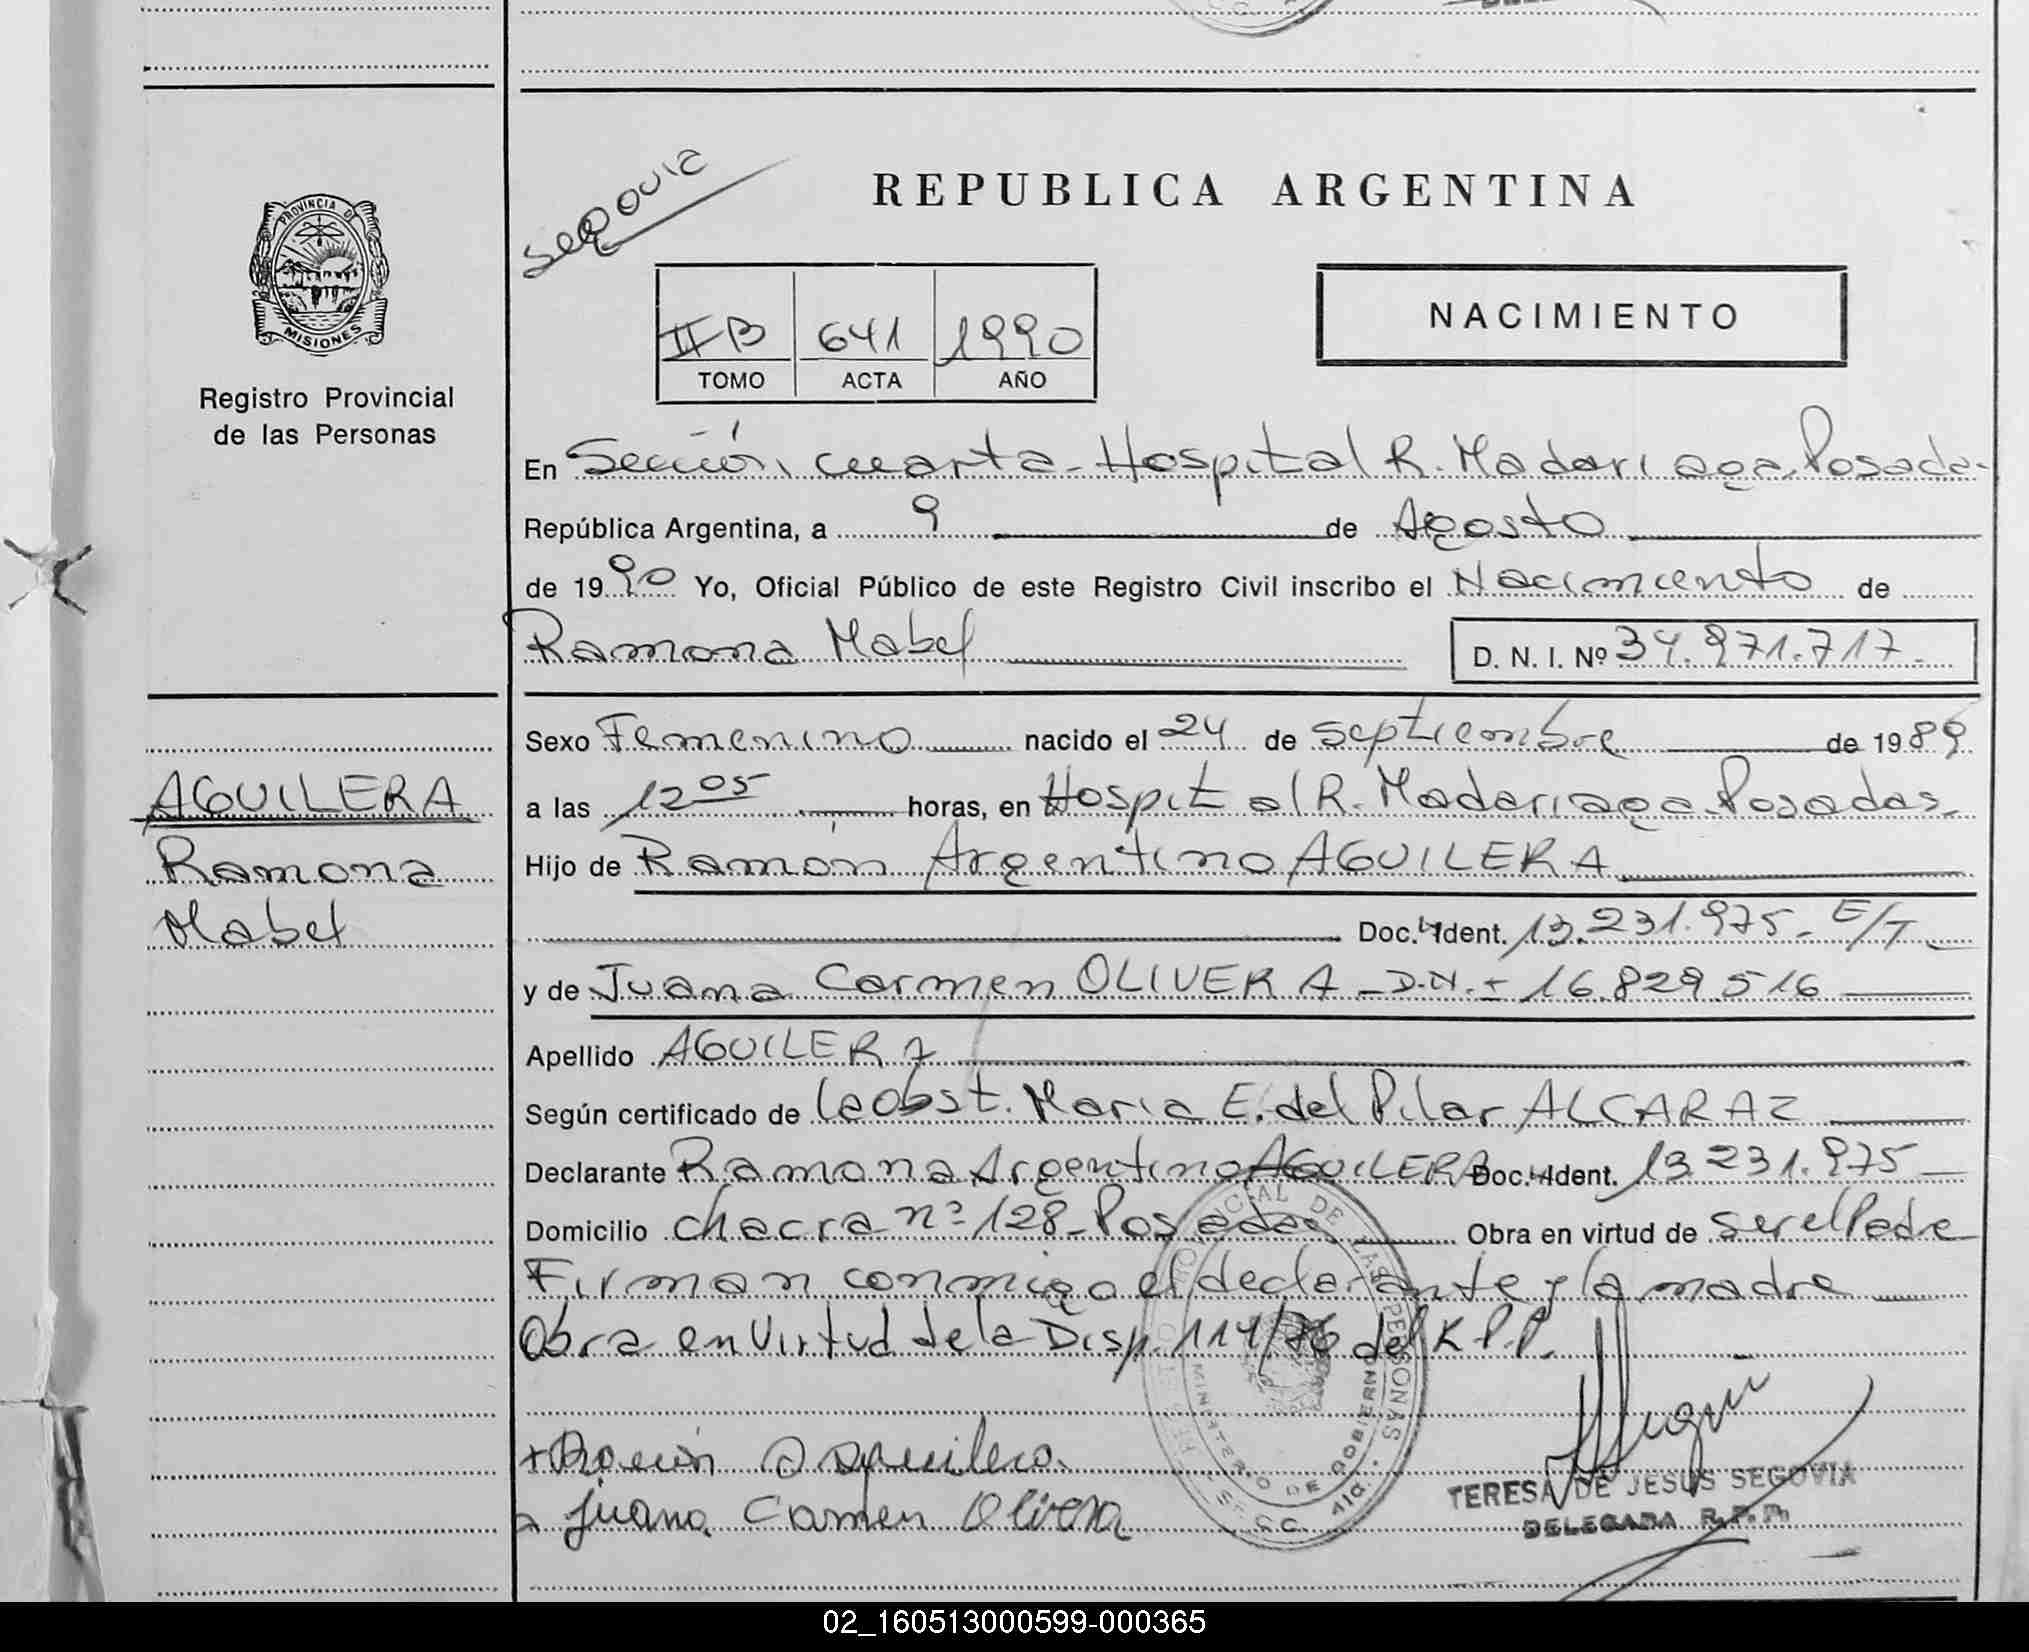 Segovia
REPUBLICA ARGENTINA
PROVINCIA DE
MISIONES
Registro Provincial
de las Personas
II B 641 1990
TOMO ACTA AÑO
NACIMIENTO
En Sección cuarta - Hospital R. Madariaga Posadas
República Argentina, a 9 de Agosto
de 1990 Yo, Oficial Público de este Registro Civil inscribo el Nacimiento de
Ramona Mabel D. N. I. Nº 34.971.717.
Sexo Femenino nacido el 24 de septiembre de 1989
AGUILERA
Ramona
Mabel
a las 12 05 horas, en Hospital R. Madariaga Posadas.
Hijo de Ramón Argentino AGUILERA
Doc. Ident. 13.231.975 - E/T
y de Juana Carmen OLIVERA - D.N.I 16.829.516
Apellido AGUILERA
Según certificado de la obst. Maria E. del Pilar ALCARAZ
Declarante Ramona Argentino AGUILERA Doc. Ident. 13.231.975
Domicilio chacra nº 128 - Posadas Obra en virtud de ser el Padre
Firman conmigo el declarante y la madre
Obra en Virtud de la Disp. 114/76 del R.P.P.
PROVINCIAL DE LAS PERSONAS
MINISTERIO DE GOBIERNO
Ramón A Aguilera
Juana Carmen Olivera
TERESA DE JESUS SEGOVIA
DELEGADA R.P.P.
02_160513000599-000365